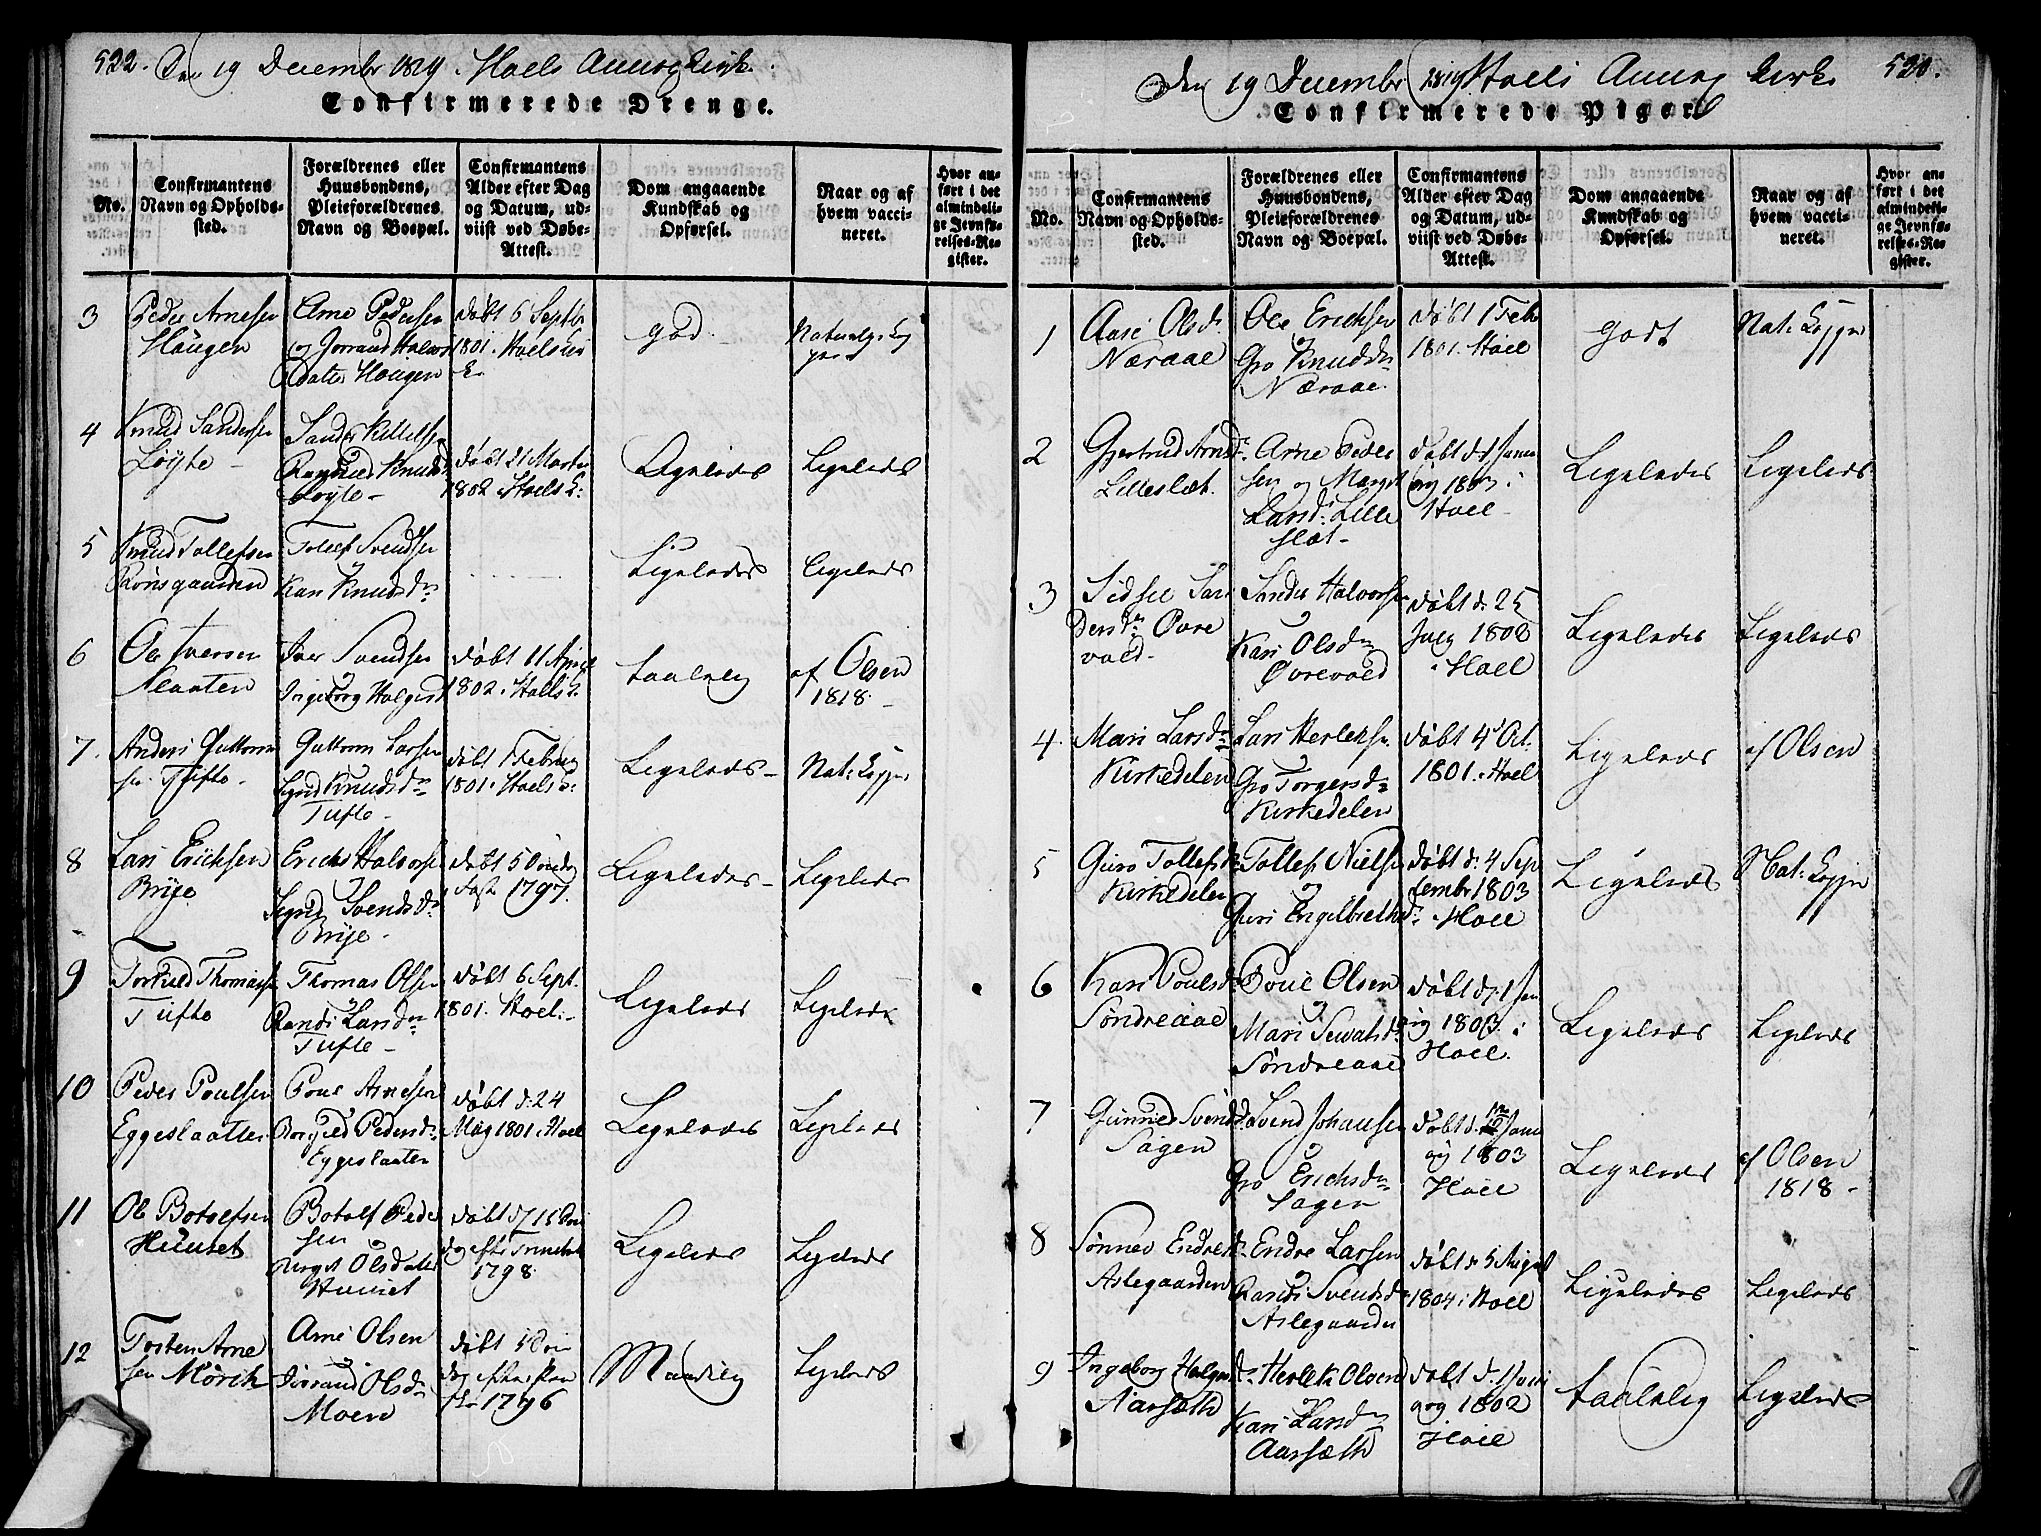 522. Den 19 December 1819. Hoels Annex Kirke.
Confirmerede Drenge.
No.
Confirmantens Navn og Opholds-
sted.
Forældrenes eller
Huusbondens,
Pleieforældrenes
Navn og Boepæl.
Confirmantens
Alder efter Dag
og Datum, ud-
viist ved Døbe-
Attest.
Dom angaaende
Kundskab og
Opførsel.
Naar og af
hvem vacci-
neret.
Hvor an-
ført i det
almindeli-
ge Jevnfø-
relses-Re-
gister.
3
Peder Arnesen
Haugen
Arne Pedersen
og Jorrand Halvors
datter Haugen
døbt 6 Septbr
1801. Hoels
god.
Naturlige Kop
per
4
Knud Sandersen
Løyte
Sander Killelsen
Ragnild Knuds
Løyte
døbt 21 Marts
1802. Hoels K:
Ligeledes
Ligeleds
5
Knud Tollefsen
Rønsgaarden
Tollef Svendsen
Kari Knudsdr
Ligeledes
Ligeleds
6
Ole Iversen
Slaaten
Iver Svendsen
Ingeborg Holgersd
døbt 11 April
1802. Hoels K.
taalelig
af Olsen
1818.
7.
Anders Guttorm
sen Tufto
Guttorm Larsen
Sigrid Knudsdr
Tufto
døbt 1 Februar
1801. Hoels K:
Ligeleds
Nat: Kopper
8
Lars Erichsen
Brye
Erich Halvorsen
Sigrid Svendsdr
Brye
døbt 5 Søndag
Fast 1797.
Ligeledes
Ligeleds
9
Torkild Thomass
Tufto
Thomas Olsen
Randi Larsdr
Tufte
døbt 6 Sept.
1801. Hoel.
Ligeleds
Ligeleds
10
Peder Poulsen
Eggeslaatten
Poul Arnesen
Ragnild Pedersdr
Eggeslaaten
døbt d: 24
May 1801. Hoel
Ligeledes
Ligeleds
11
Ole Botolfsen
Huuset
Botolf Peder
sen
Birgit Olsdatter
Huuset
1798
Ligeleds
Ligeleds
12
Torsten Arne
sen Mörch
Arne Olsen
Jorrand Olsdr
Moen
1796
Maadelig
Ligeleds
Den 19 December 1819 Hoels Annex Kirke 520.
Confirmerede Piger.
No.
Confirmantens
Navn og Opholds-
sted.
Forældrenes eller
Huusbondens,
Pleieforældrenes
Navn og Boepæl.
Confirmantens
Alder efter Dag
og Datum, ud-
viist ved Døbe-
Attest.
Dom angaaende
Kundskab og
Opførsel.
Naar og af
hvem vacci-
neret.
Hvor an-
ført i det
almindeli-
ge Jevnfø-
relses-Re-
gister.
1
Aase Olsdr
Næraae
Ole Erichsen
Gro Knudsdr
Næraae.
døbt 1 Feb
1801. Hoel
godt
Nat: Kopper
2
Gjertrud Arnsdr.
Lilleslæt.
Arne Peder
sen og Margit
Larsd: Lille
slæt
døbt d 1 Janu
Hoel
Ligeledes
Ligeleds
3
Sidsel San
dersdr Øvre
vold.
Sander Halvorsen
Kari Olsdr
Øvrevold
døbt d: 25
July 1802
i Hoel
Ligeledes
Ligeleds
4.
Mari Larsdr
Kirkedelen
Lars Herleksen
Gro Torgersdr
Kirkedelen
døbt 4 Oct.
1801. Hoel
Ligeleds
af Olsen
5
Guro Tollefsdr
Kirkedelen
Tollef Nielsen
Guri Engelbrethsd:
døbt d: 4 Sep
tembr 1803
i Hoel
Ligeleds
Nat: Kopper
6
Kari Poulsdr
Søndreaae
Poul Olsen
Mari Sevatsd
Søndreaae
døbt d: 1 Jan
1803. i
Hoel.
Ligeleds
Ligeleds
7
Gunnild Svendsd
Sagen
Svend Johansen
Gro Erichsdr
Sagen
1803
Hoel
Ligeleds
af Olsen
1818
8
Sønnev Endresdr
Aslegaarden
Endre Larsen
Randi Svendsdr
Aslegaarden
døbt d 5 August
1804 i Hoel
Ligeledes
Ligeleds
9
Ingeborg Halgrimsdr
Aarsæth
Herlek Olsen
Kari Larsdr
Aarsæth
1802
Hoel
taalelig
Ligeleds